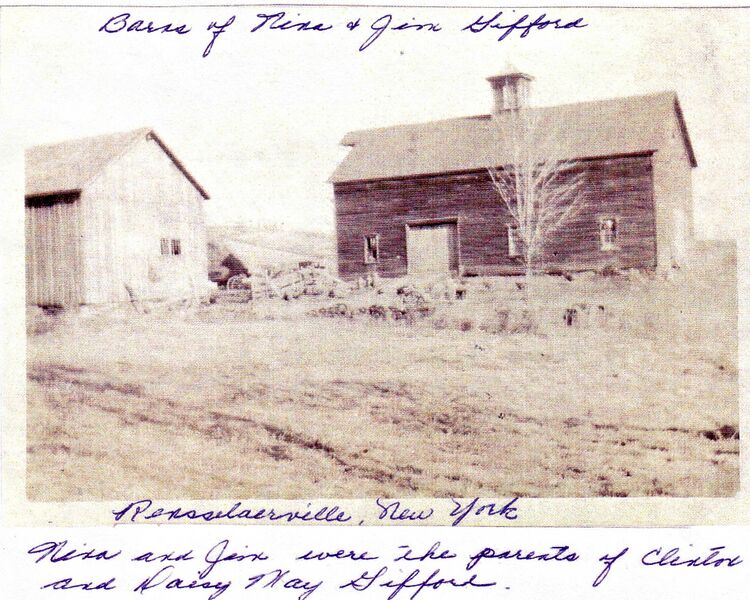 Barns of Nina & Jim Gifford
Rensselaerville, New York
Nina and Jim were the parents of Clinton
and Daisy May Gifford.